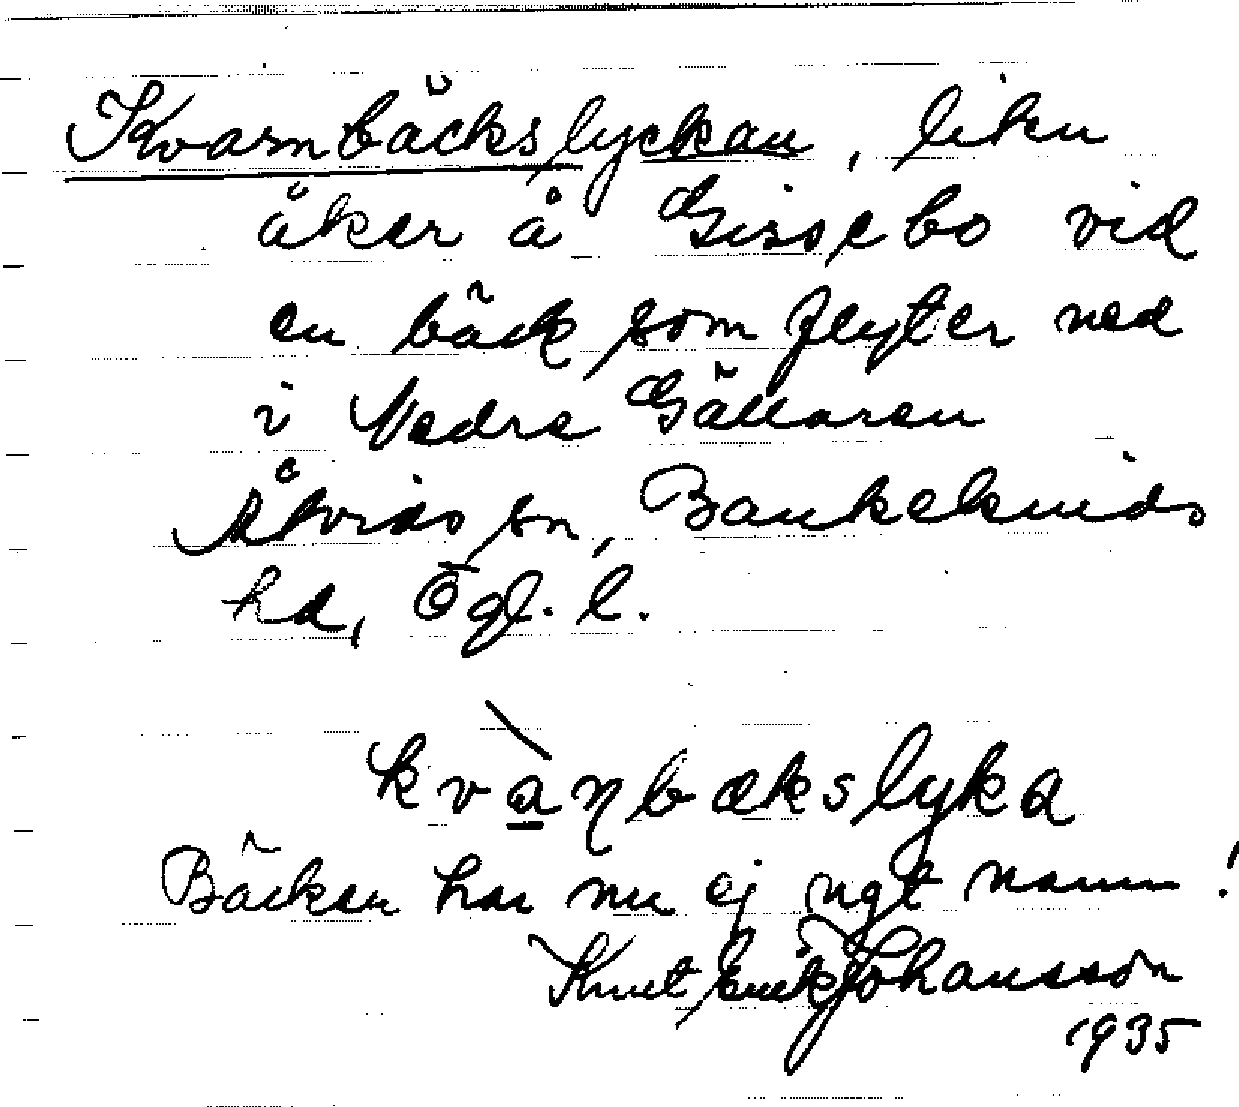 Kvarnbäckslyckan, liten
åker å Gissebo vid
en bäck som flyter ned
i Nedre Gällaren
Åtvids sn, Bankekinds
hd, Ögl. l.
kvanbækslyka
Bäcken har nu ej ngt namn!
Knut Erik Johansson
1935